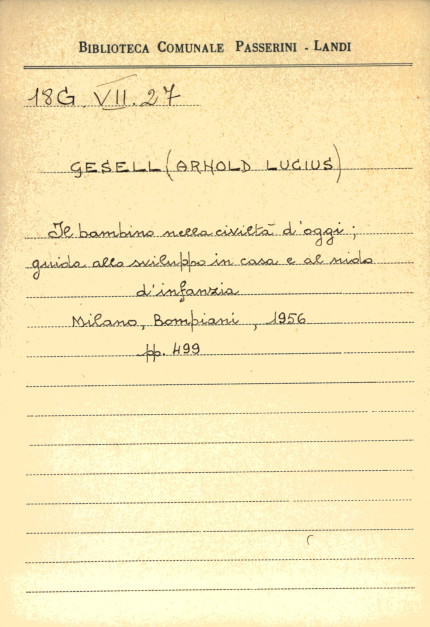 BIBLIOTECA COMUNALE PASSERINI - LANDI
18G. VII. 27
GESELL (ARNOLD LUCIUS)
Il bambino nella civiltà d'oggi ;
guida allo sviluppo in casa e al nido
d'infanzia
Milano, Bompiani, 1956
pp. 499